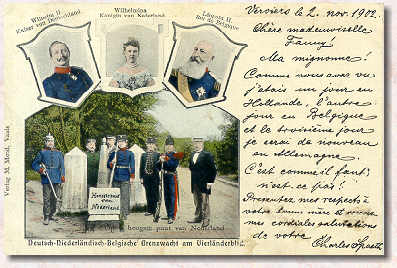 Wilhelm II
Kaiser von Deutschland
Wilhelmina
Königin van Nederland
Léopold II
Roi de Belgique
Verlag M. Meril, Vaals
Hoogste punt
van
Nederland
hoogen punt van Nederland
Deutsch-Niederländisch-Belgische Grenzwacht am Vierländerblick
Verviers le 2. nov. 1902.
Chère mademoiselle
Fanny!
Ma mignonne!
Comme vous avez vu
j'étais un jour en
Hollande, l'autre
jour en Belgique
et le troisième jour
je serai de nouveau
en Allemagne.
C'est comme il faut,
n'est ce pas!
Présentez mes respects à
votre mère et
mes cordiales salutations
de votre
Charles Spaeth